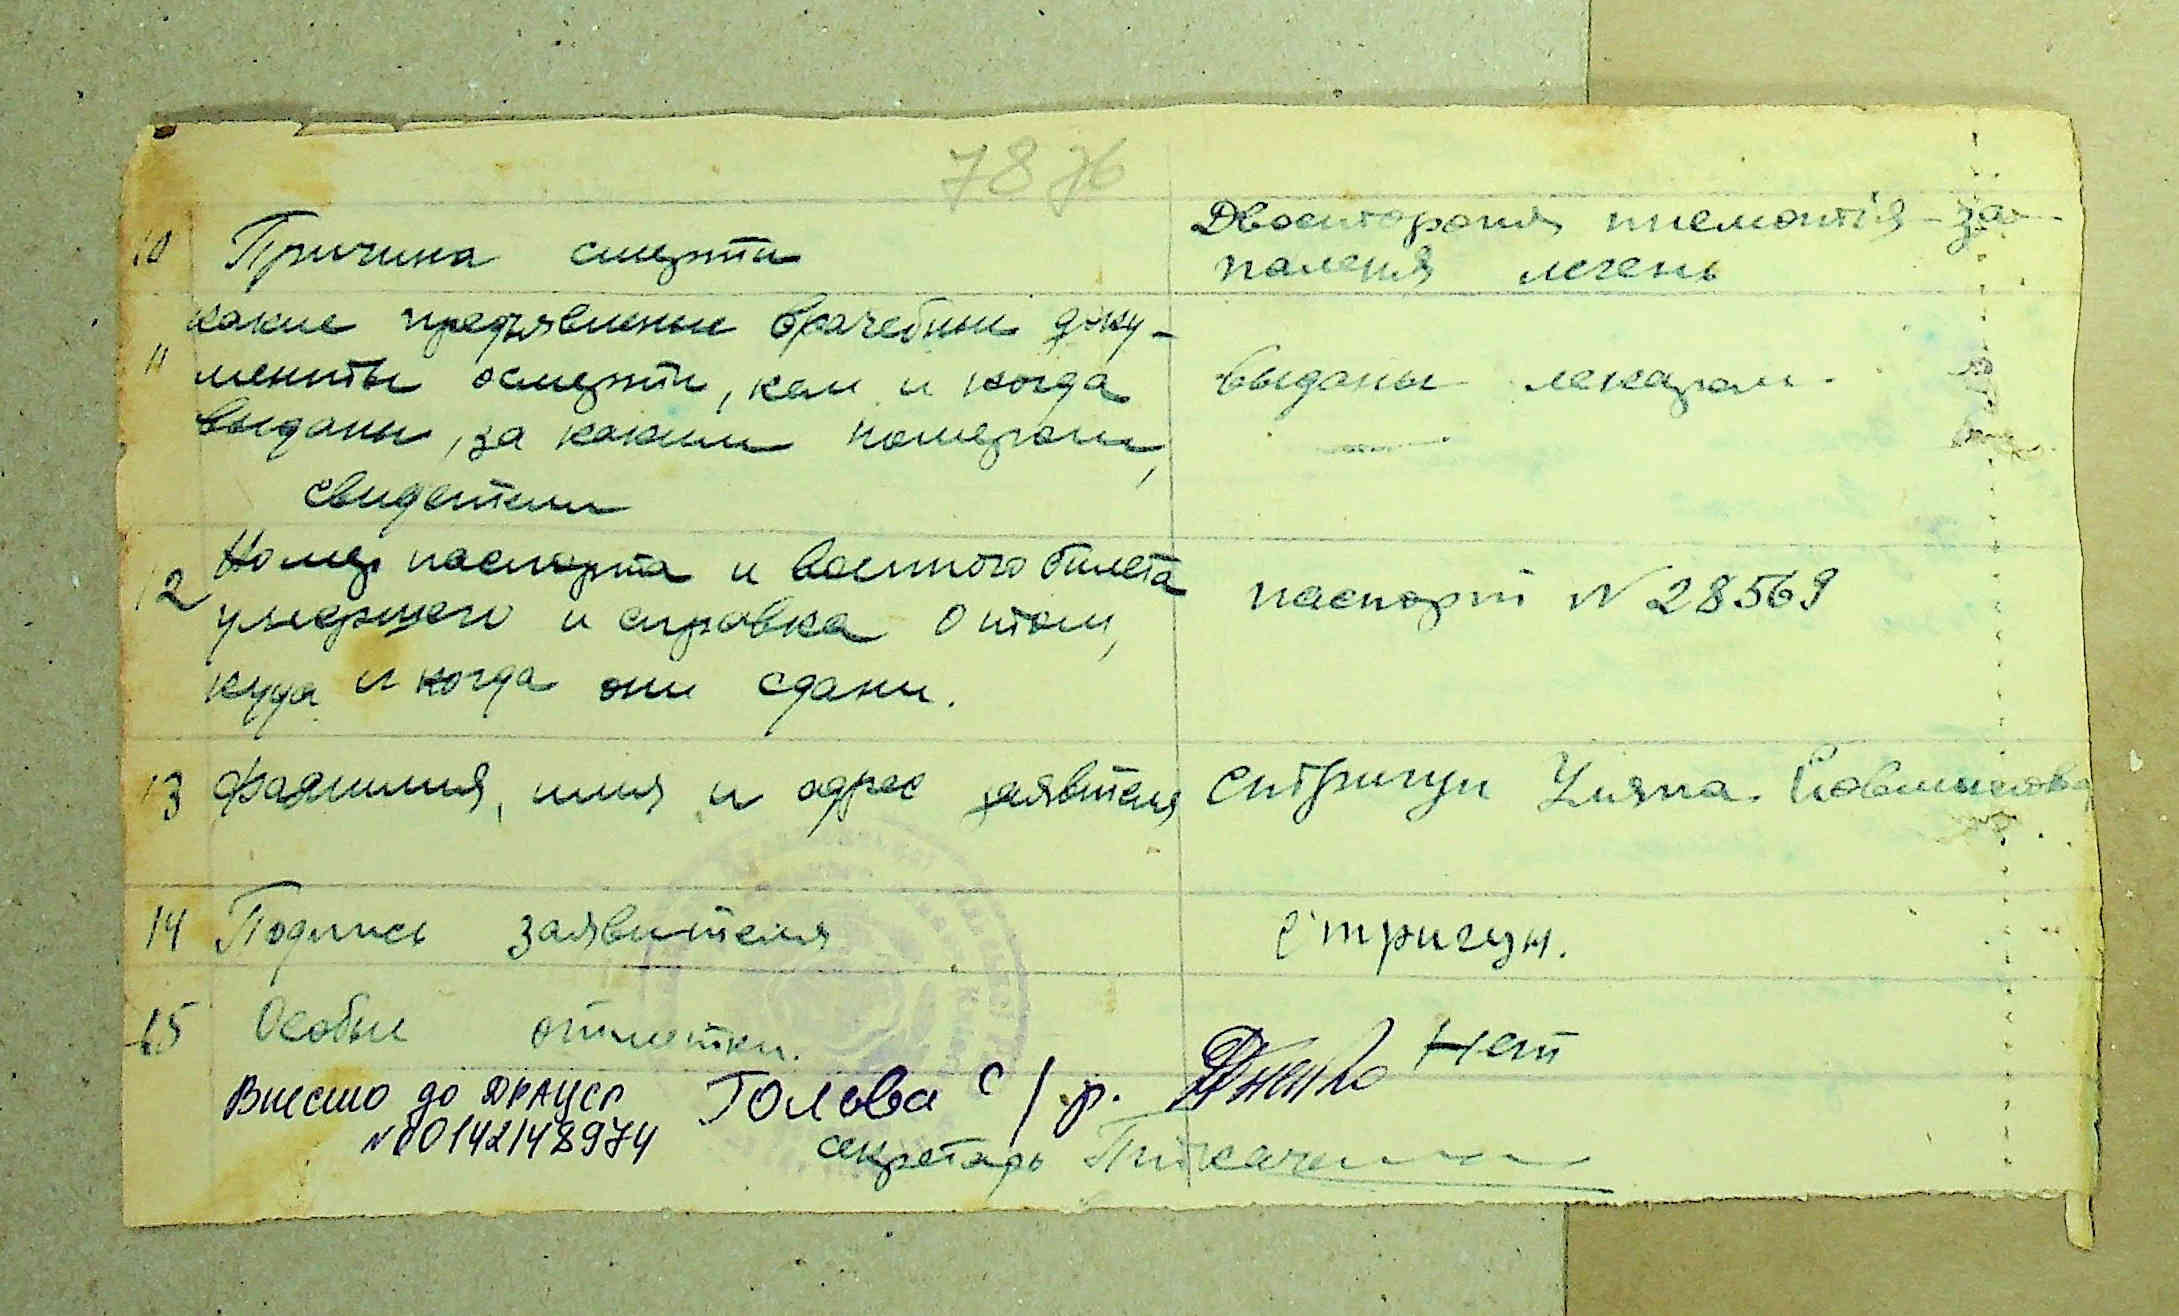 78
10 Причина смерти
Двостороння пневмонія - за-
палення лёгень
какие предъявлены врачебные доку-
11 менты о смерти, кем и когда
выданы, за каким номером,
свидетели
выданы лекарем.
12 Номер паспорта и военного билета
умершего и справка о том,
куда и когда они сданы.
паспорт N 28569
13 Фамилия, имя и адрес заявителя
Стригун Уляна
14 Подпись заявителя
Стригун.
15 Особые отметки.
Нет
Внесено до ДРАЦСГ
N 00142148974
Голова с/р.
секретарь